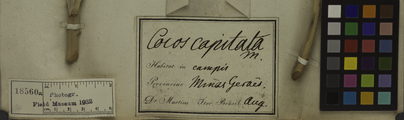 Cocos capitata
M.
Habitat in campis
Provinciae Minas Geraës.
Dr. Martius Iter Brasil. Aug.
18560a
Photogr.
Field Museum 1982